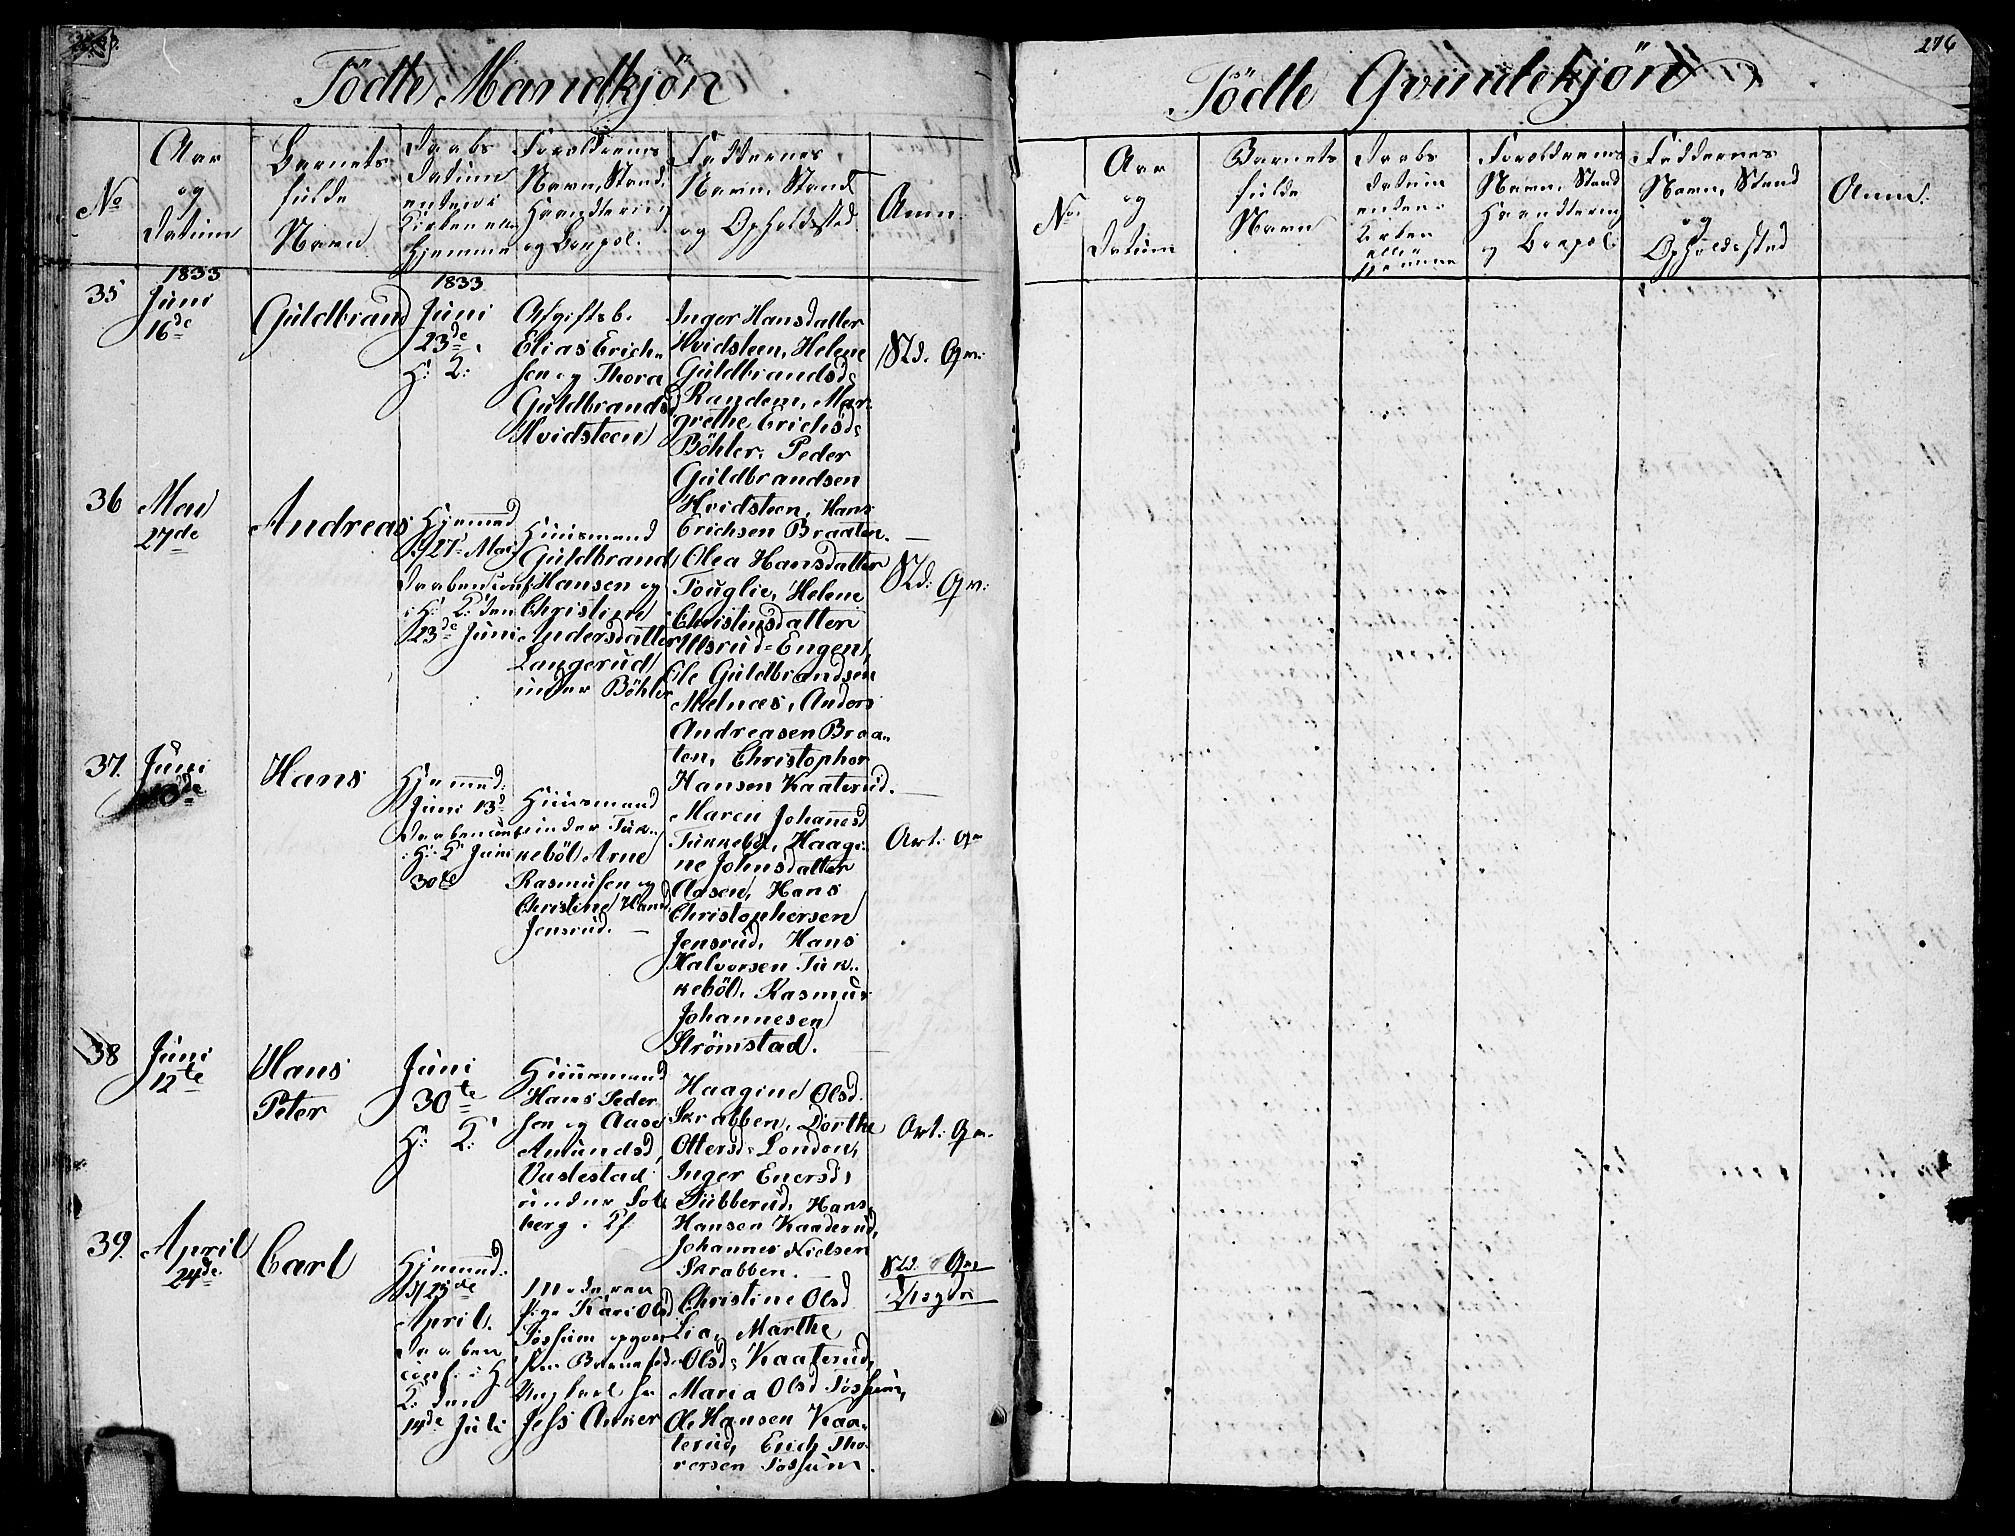 Födte Mandkjön
No
Aar
og
Datum
Barnets
fulde
Navn
Daabs
Datum
enten i
Kirken eller
Hjemme
Forældrenes
Navn, Stand,
Haandtering
og Boepæl.
Faddernes
Navn, Stand
og Opholdssted.
Anm:
35
1833
Juni
16de
Guldbrand
1833
Juni
23de
H: K:
Afgiftsb.
Elias Erich-
sen og Thora
Guldbrandsd
Hvidsteen
Inger Hansdatter
Hvidsteen, Helene
Guldbrandsd:
Randem, Mar-
grethe Erichsd:
Böhler. Peder
Guldbrandsen
Hvidsteen, Hans
Erichsen Braaten.
36
Mai
27de
Andreas
Hjemmed
27 Mai
Daaben conf
i H: K: den
23de Juni
Huusmand
Guldbrand
Hansen og
Christine
Andersdatter
Langerud
under Böhler
Olea Hansdatter
Touglie, Helene
Christensdatter
Ulsrud-Engen,
Ole Guldbrandsen
Melnæs, Anders
Andreasen Braa-
ten, Christopher
Hansen Kaaterud.
37.
Juni
Hans
Hjemmed:
Juni 13d
Daaben conf
i H: K: Juni
30te
Huusmand
under Tuk-
keböl Arne
Rasmusen og
Christine Hansd
Jensrud.
Maren Johanesd
Tukkeböl, Haagi-
ne Johnsdatter
Aasen, Hans
Christophersen
Jensrud, Hans
Halvorsen Tuk-
keböl. Rasmus
Johannesen
Strömstad.
38
Juni
12te
Hans
Peter
Juni
30te
H: K:
Huusmand
Hans Peder
sen og Aase
Amundsd,
Vastestad
under Sol
berg i Kf.
Haagine Olsd.
Skrabben, Dorthe
Ottersd: London,
Inger Enersd:
Tubberud, Hans
Hansen Kaaderud,
Johannes Nielsen
Skrabben.
39.
April
24de
Carl
Hjemmed:
25de
April.
Daaben
conf. i H.
K: den
14de Juli
Moderen
Pige Kari Olsd
Tossum opgver
Barnefader
Ungkarl
Jess Anker
Christine Olsd
Lia, Marthe
Olsd: Kaaterud,
Maria Olsd Tossum,
Ole Hansen Kaa-
terud, Erich Tho-
versen Tossum.
Födte Qvindekjön
276
No
Aar
og
Datum
Barnets
fulde
Navn
Daabs
Datum
enten i
Kirken
eller
Hjemme
Forældrenes
Navn, Stand
Haandtering
og Boepæl:
Faddernes
Navn, Stand
og
Opholdssted
Anm: